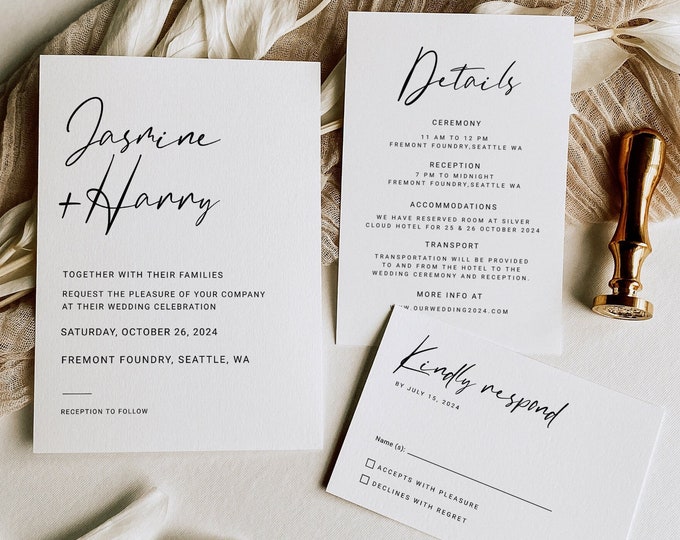 Jasmine
+Harry
TOGETHER WITH THEIR FAMILIES
REQUEST THE PLEASURE OF YOUR COMPANY
AT THEIR WEDDING CELEBRATION
SATURDAY, OCTOBER 26, 2024
FREMONT FOUNDRY, SEATTLE, WA
RECEPTION TO FOLLOW
Details
CEREMONY
11 AM TO 12 PM
FREMONT FOUNDRY,SEATTLE WA
RECEPTION
7 PM TO MIDNIGHT
FREMONT FOUNDRY,SEATTLE WA
ACCOMMODATIONS
WE HAVE RESERVED ROOM AT SILVER
CLOUD HOTEL FOR 25 & 26 OCTOBER 2024
TRANSPORT
TRANSPORTATION WILL BE PROVIDED
TO AND FROM THE HOTEL TO THE
WEDDING CEREMONY AND RECEPTION.
MORE INFO AT
.OURWEDDING2024.COM
Kindly respond
BY JULY 15, 2024
Name (s):
ACCEPTS WITH PLEASURE
DECLINES WITH REGRET